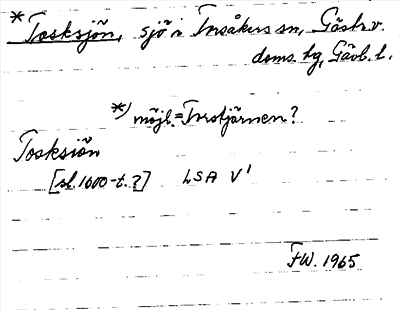 *Tosksjön, sjö i Torsåkers sn, Gästr. v.
doms. hg, Gävl. l.
*) möjl. = Torstjärnen?
Tosksiön
[sl. 1600-t.?] LSA V¹
FW. 1965